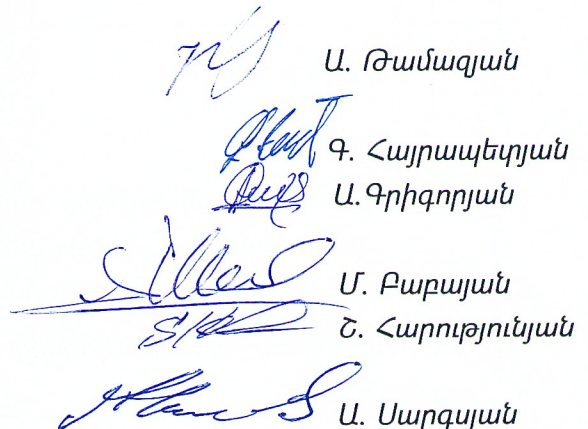 Ա. Թամազյան
Գ. Հայրապետյան
Ա.Գրիգորյան
Մ. Բաբայան
Շ. Հարությունյան
Ա. Սարգսյան